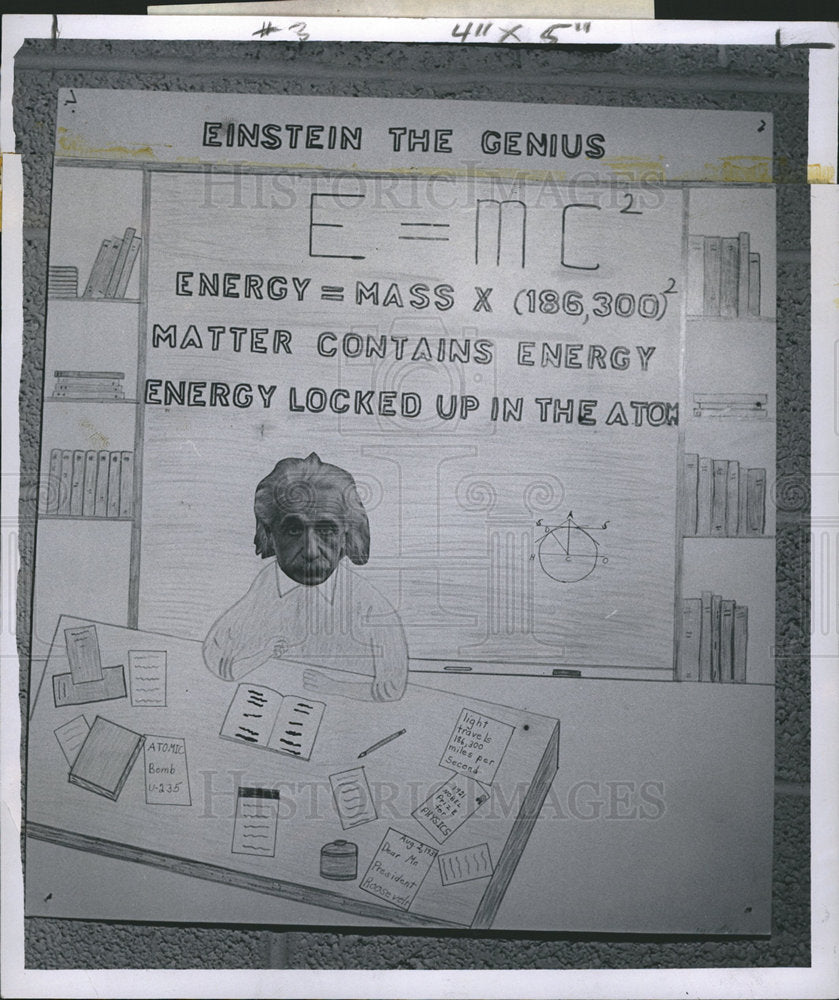 # 3
4" x 5"
EINSTEIN THE GENIUS
HISTORICIMAGES
E = mc²
ENERGY = MASS X (186,300)²
MATTER CONTAINS ENERGY
ENERGY LOCKED UP IN THE ATOM
A
B
H
C
O
light
travels
186,300
miles per
second
ATOMIC
Bomb
U-235
1921
NOBEL
PRIZE
for
PHYSICS
HISTORICIMAGES
Dear Mr.
President
Roosevelt